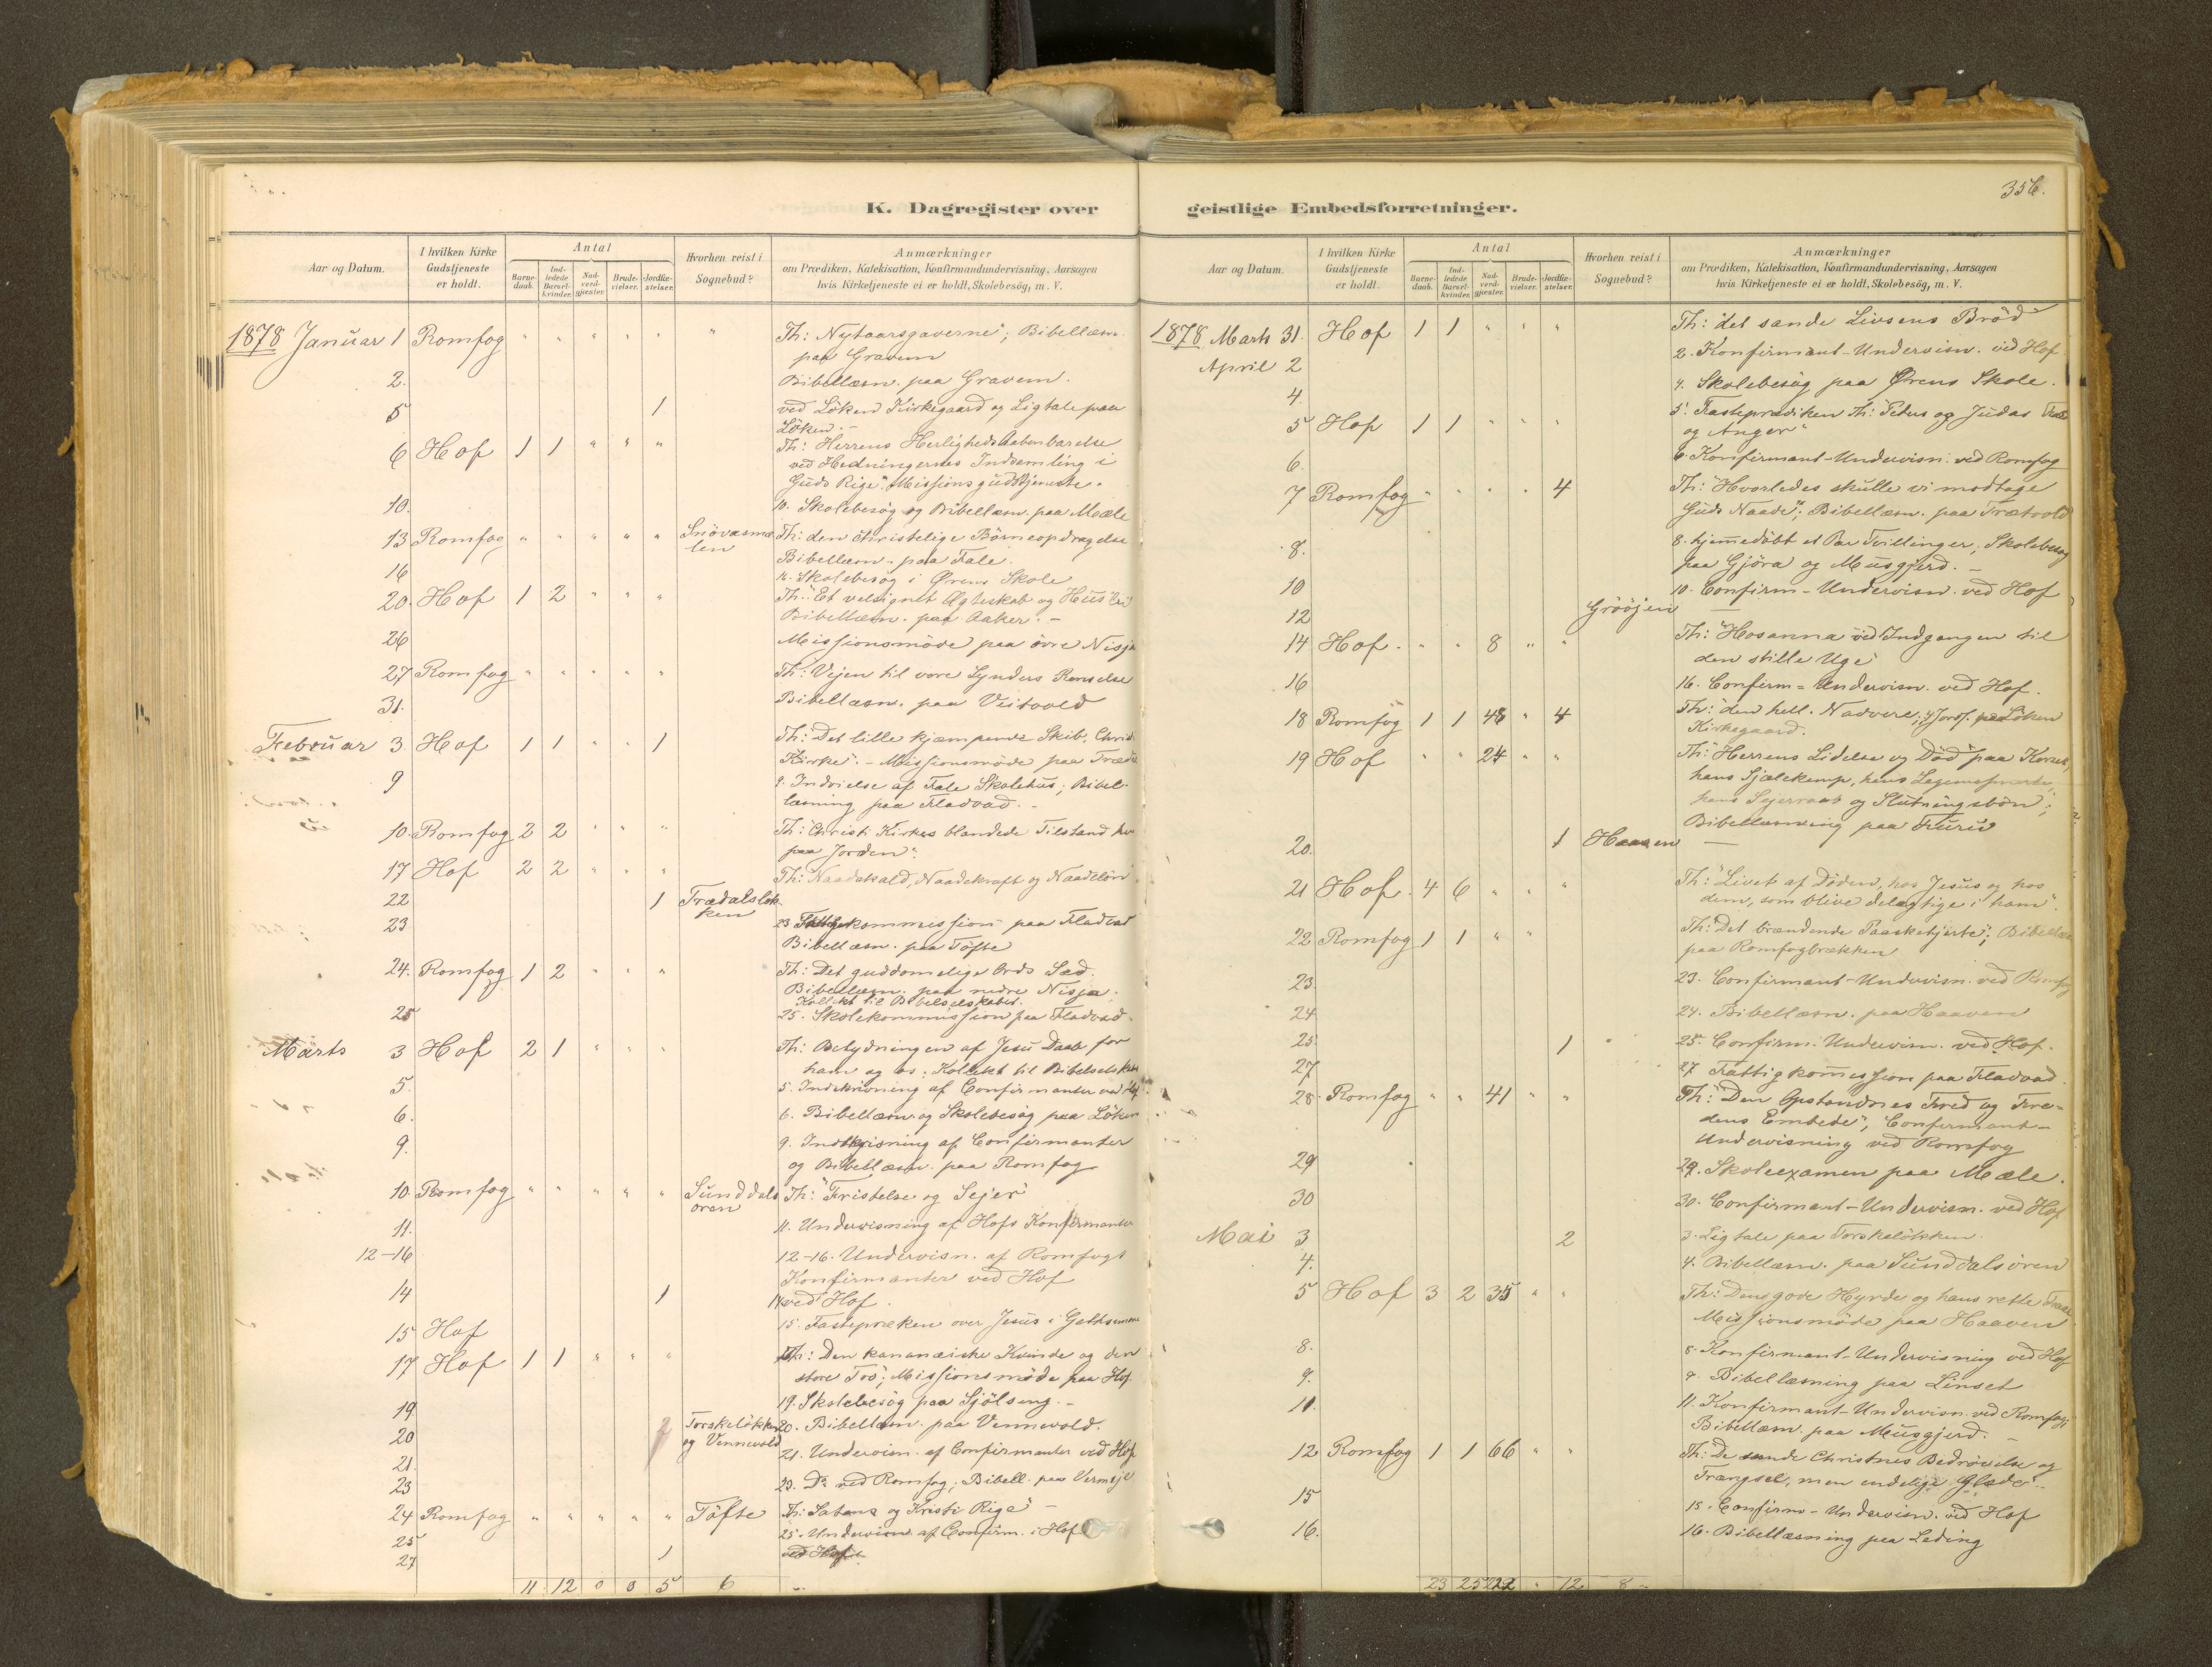 356.
K. Dagregister over geistlige Embedsforretninger.
Aar og Datum. I hvilken Kirke Gudstjeneste er holdt. Antal Barne-daab. Ind-ledede Barsel-kvinder. Nad-verd-gjester. Brude-vielser. Jordfæ-stelser. Hvorhen reist i Sognebud? Anmærkninger
om Prædiken, Katekisation, Konfirmandundervisning, Aarsagen
hvis Kirketjeneste ei er holdt, Skolebesög, m. V.
1878 Januar 1 Romfog " " " " " " Th: Nytaarsgaverne"; Bibellæsn.
paa Gravem
2. Bibellæsn. paa Gravem.
5 1 ved Löken Kirkegaard og Ligtale paa
Löken. -
6 Hof 1 1 " " " Th: Herrens Herligheds Aabenbarelse
ved Hedningernes Indsamling i
Guds Rige". Missionsgudstjeneste.
10. 10. Skolebesög og Bibellæsn. paa Mæle
13 Romfog " " " " " Snövasmælen Th: den christelige Börneopdragelse
16 Bibellæsn. paa Fale.
16. Skolebesög i Ørens Skole
20. Hof 1 2 " " " Th: "Et velsignet Ægteskab og Hus
Bibellæsn. paa Aaker. -
26 Missionsmöde paa övre Nisja
27 Romfog " " " " " Th: Vejen til vore Synders Renselse
31. Bibellæsn. paa Veitvold
Februar 3 Hof 1 1 " " 1 Th: Det lille kjæmpende Skib, Christi
Kirke". - Missionsmöde paa Træd
9 9. Indvielse af Fale Skolehus; Bibel-
læsning paa Fladvad. -
10. Romfog 2 2 " " " Th: Christi Kirkes blandede Tilstand her
paa Jorden".
17 Hof 2 2 " " " Th: Naadekald, Naadekraft og Naadelön
22 1 Trædalslökken
23 23 Fattigkommission paa Fladvad
Bibellæsn. paa Töfte
24. Romfog 1 2 " " " Th: Det guddomelige Ords Sæd.
Bibellæsn. paa nedre Nisja.
Kollekt til Bibelselskabet.
25 25. Skolekommission paa Fladvad.
Marts 3 Hof 2 1 " " " Th: Betydningen af Jesu Daab for
ham og os. Kollekt til Bibelselskab
5. 5. Indskrivning af Confirmanter ved Hof
6. 6. Bibellæsn. og Skolebesög paa Löken
9. 9. Indskrivning af Confirmanter
og Bibellæsn. paa Romfog
10. Romfog " " " " " Sunddalsören Th: "Fristelse og Sejer"
11. 11. Undervisning af Hofs Konfirmanter
12-16 12-16. Undervisn. af Romfogs
Konfirmanter ved Hof
14 1 14 ved Hof.
15 Hof 15. Fastepræken over Jesus i Gethsemane
17 Hof 1 1 " " " Th: Den kananæiske Kvinde og den
store Tro; Missionsmöde paa Hof.
19 19. Skolebesög paa Sjölseng. -
20 2 Torskelökken og Vennevold 20. Bibellæsn. paa Vennevold.
21. 21. Undervisn. af Confirmanter ved Hof
23 23. Do ved Romfog; Bibell. paa
24 Romfog " " " " " Töfte Th: Satans og Kristi Rige" -
25 25. Undervisn. af Confirm. i Hof
27 1 ved Hof.
11 12 0 0 5 6
1878 Marts 31. Hof 1 1 " " " Th: det sande Livsens Bröd
April 2 2. Konfirmant-Undervisn. ved Hof.
4. 4. Skolebesög paa Ørens Skole.
5 Hof 1 1 " " " 5. Fastepræedken Th: Petrus og Judas
og Anger"
6. 6. Konfirmant-Undervisn. ved Romfog
7 Romfog " " " " 4 Th: "Hvorledes skulle vi modtage
Guds Naade"; Bibellæsn. paa Trætvold
8. 8. hjemmedöbt et Par Tvillinger, Skolebesög
paa Gjöra og Musgjerd. -
10 10. Confirm-Undervisn. ved Hof
12 Gröðjen -
14 Hof. " " 8 " " Th: "Hosanna ved Indgangen til
den stille Uge"
16 16. Confirm-Undervisn. ved Hof.
18 Romfog 1 1 48 " 4 Th: "den hell. Nadvere; 4 Jordf. paa Löken
Kirkegaard.
19 Hof " " 24 " " Th: "Herrens Lidelse og Död" paa Korset,
hans Sjælekamp, hans Legemssmerte,
hans Sejersraab og Slutningsbön;
Bibellæsning paa Furu
20. 1 Haaven -
21 Hof. 4 6 " " " Th: "Livet af Döden, hos Jesus og hos
dem, som blive delagtige i ham".
22 Romfog 1 1 " " Th: Det brændende Paaskehjerte; Bibellæsn
paa Romfogbrækken
23. 23. Confirmant-Undervisn. ved Romfog
24 24. Bibellæsn. paa Haaven
25 1 25. Confirm. Undervisn. ved Hof.
27 27 Fattigkommission paa Fladvad.
28. Romfog " " 41 " " Th: "Den Opstandnes Fred og Fre-
dens Embede"; Confirmant-
Undervisning ved Romfog
29 29. Skoleexamen paa Mæle.
30 30. Confirmant-Undervisn. ved Hof
Mai 3 2 3. Ligtale paa Torskelökken.
4. 4. Bibellæsn. paa Sunddalsören
5 Hof 3 2 35 " " Th: Den gode Hyrde og hans rette Faar
Missionsmöde paa Haaven
8. 8. Konfirmant-Undervisning ved Hof
9. 9. Bibellæsning paa Linset
11. 11. Konfirmant-Undervisn. ved Romfog;
Bibellæsn. paa Musgjerd. -
12 Romfog 1 1 66 " " Th: De sande Christnes Bedrövelse og
Trængsel, men endelige Glæde".
15 15. Confirm-Undervisn. ved Hof
16. 16. Bibellæsning paa Leding
23 25 222 " 12 8